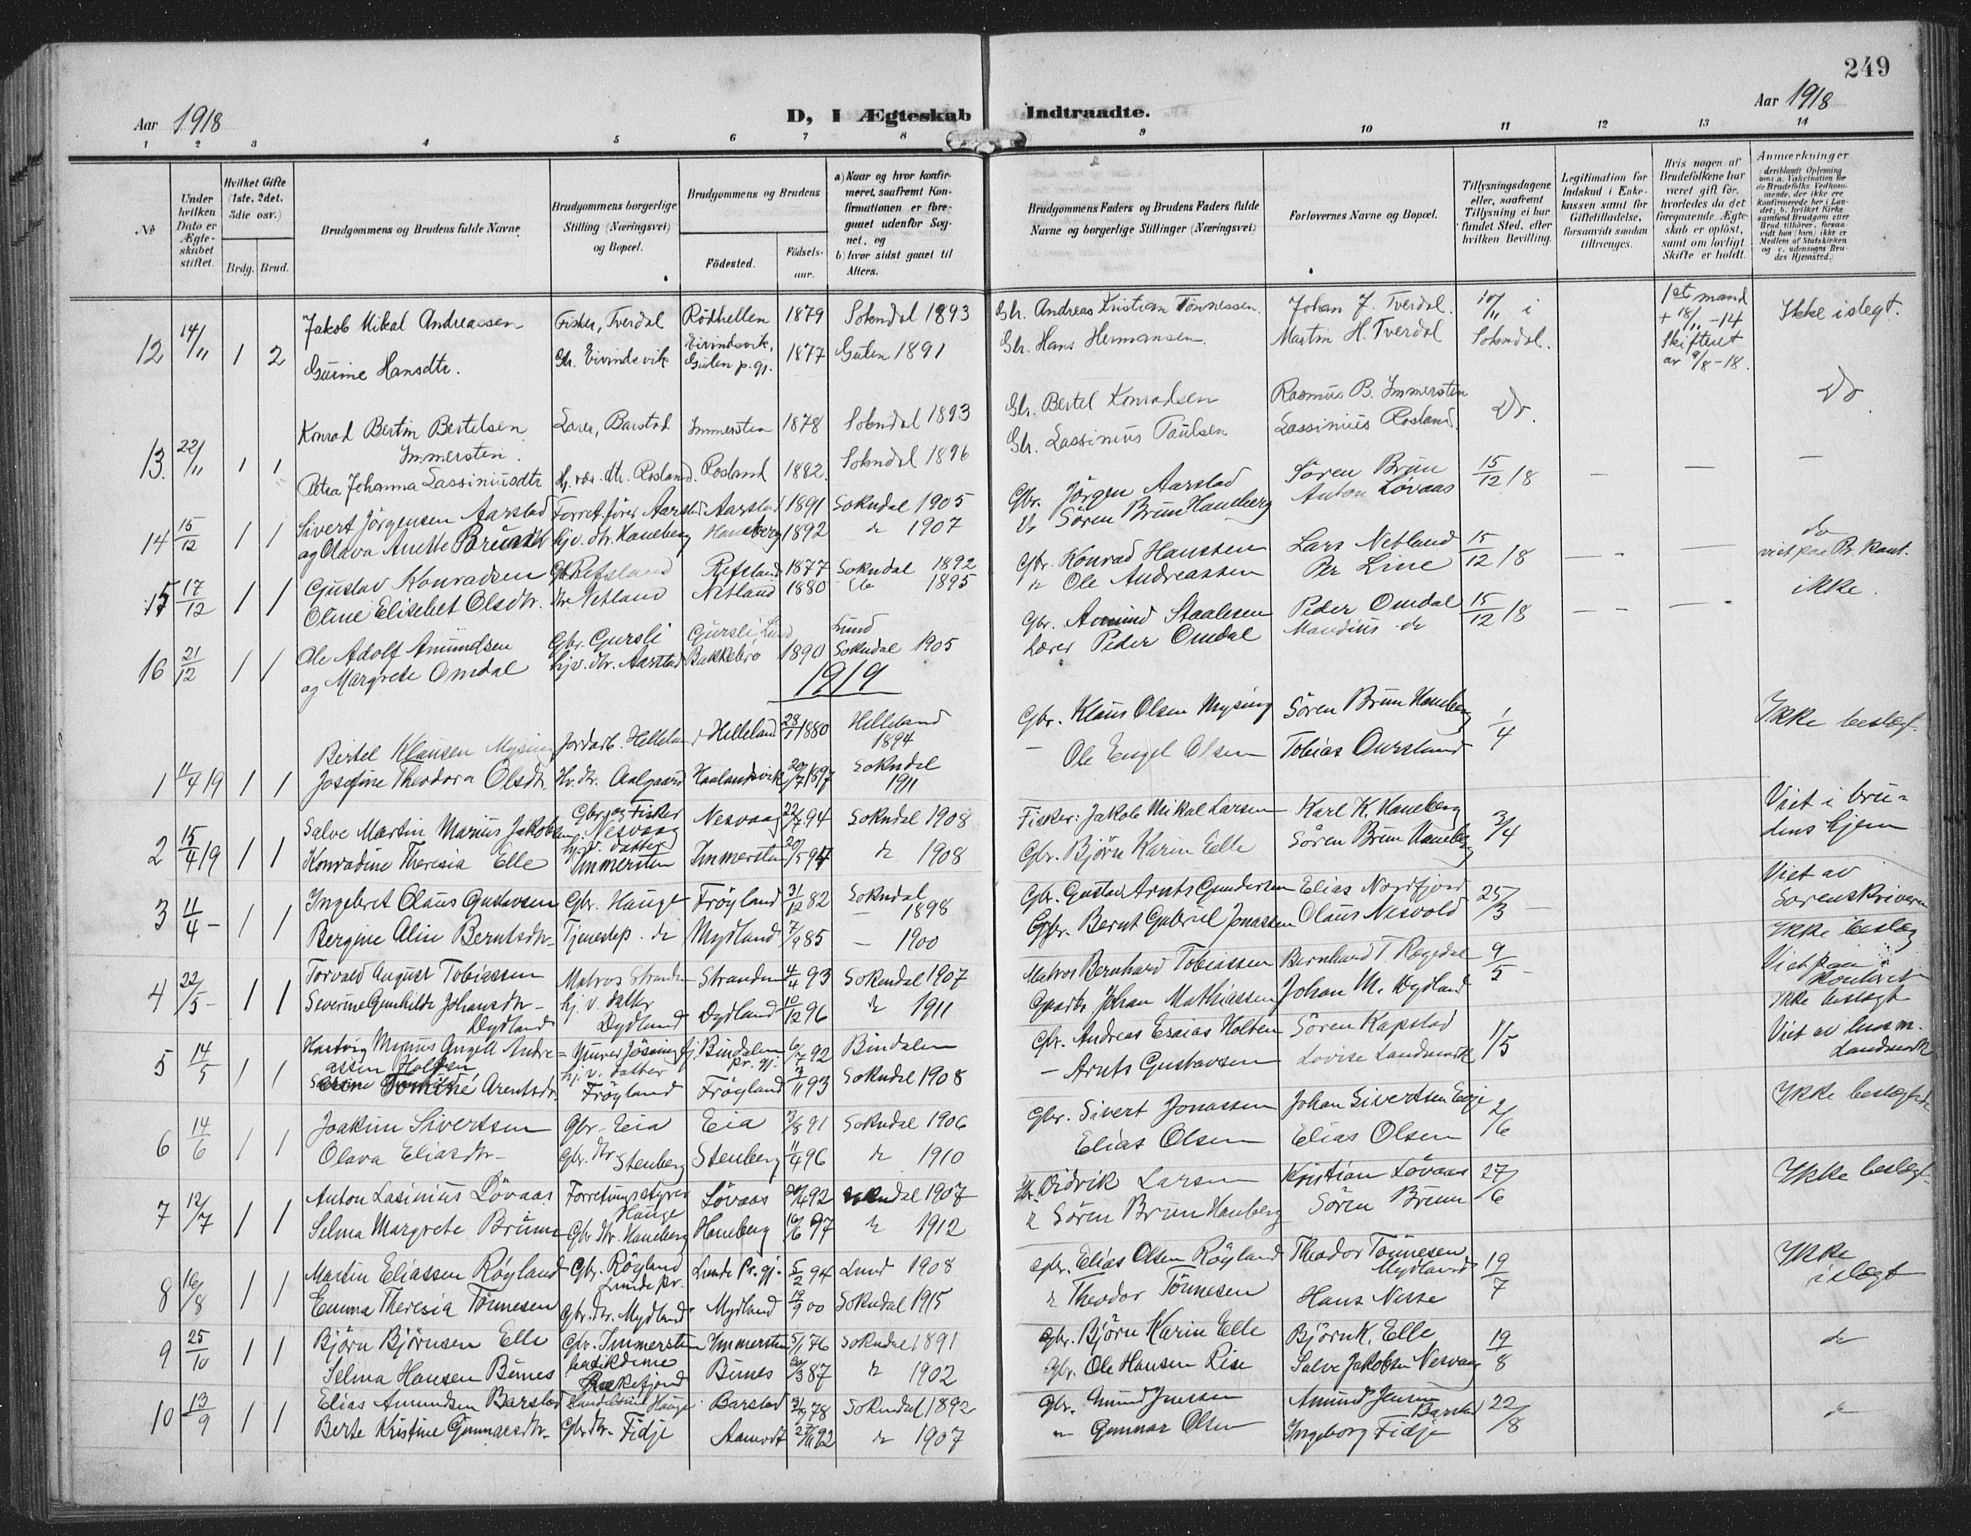 249
Aar 1918
D, I Ægteskab Indtraadte.
Aar 1918
1 2 3 4 5 6 7 8 9 10 11 12 13 14
No
Under hvilken Dato er Ægteskabet stiftet.
Hvilket Gifte (1ste, 2det, 3die osv.)
Brdg. Brud.
Brudgommens og Brudens fulde Navne
Brudgommens borgerlige Stilling (Næringsvei) og Bopæl.
Brudgommens og Brudens
Fødested.
Fødselsaar.
a) Naar og hvor konfirmeret, saafremt Konfirmationen er foregaaet udenfor Sognet, og
b) hvor sidst gaaet til Alters.
Brudgommens Faders og Brudens Faders fulde Navne og borgerlige Stillinger (Næringsvei)
Forlovernes Navne og Bopæl.
Tillysningsdagene eller, saafremt Tillysning ei har fundet Sted, efter hvilken Bevilling.
Legitimation for Indskud i Enkekassen samt for Giftetilladelse, forsaavidt saadan tiltrænges.
Hvis nogen af Brudefolkene har været gift før, hvorledes da det foregaaende Ægteskab er opløst, samt om lovligt Skifte er holdt.
Anmærkninger
12 14/11 1 2 Jakob Mikal Andreassen Fisker, Tverdal Rødhellen 1879 Sokndal 1893 Gbr. Andreas Kristian Tønnessen Johan J. Tverdal 10/11 i 1st mand + 18/11-14 Ikke i slegt.
Gurine Hansdtr. Eivindsvik Eivindsvik, Gulen p.gj. 1877 Gulen 1891 Gbr. Hans Hermansen Martin H. Tverdal Sokndal. Skiftet av 9/8-18.
13. 22/11 1 1 Konrad Bertin Bertelsen Immersten Lærer, Barstad Immersten 1878 Sokndal 1893 Gbr. Bertel Konradsen Rasmus B. Immersten Do. Do
Petra Johanna Lassiniusdtr Rosland. Rosland 1882 Sokndal 1896 Gbr. Lassinius Paulsen Lassinius Rosland.
14 15/12 1 1 Sivert Jörgensen Aarstad Aarstad 1891 Sokndal 1905 Gbr. Jörgen Aarstad Sören Brun 15/12 18 — — —
og Olava Anette Hj.v. dtr. Haneberg Haneberg 1892 do 1907 Sören Brun Haneberg Anton Lövaas
15 17/12 1 1 Gustav Konradsen Gbr. Refsland Refsland 1877 Sokndal 1892 Gbr. Konrad Hanssen Lars Netland 15/12 18 do viet paa
Oline Elisebet Olsdtr. Netland Netland 1880 do 1895 Ole Andreassen Per Line ikke.
16 21/12 1 1 Ole Adolf Amundsen Gbr. Gursli Gursli Lund Lund Gbr. Amund Staalesen Peder Omdal 15/12 18
og Margrete Omdal Hj.v. dtr. Aarstad Bakkebrö 1890 Sokndal 1905 Lærer Peder Omdal Mandius do
1919
1 4/4 19 1 1 Bertel Klausen Mysing Helleland Helleland 28/1 1880 Helleland 1894 Gbr. Klaus Olsen Mysing Sören Brun Haneberg 1/4 Ikke beslegt.
Josefine Theodora Olsdtr. Aalgaard Haalandsvik 20/7 1897 Sokndal 1911 — Ole Engel Olsen Tobias Aursland
2 15/4 19 1 1 Salve Martin Marius Jakobsen Gbr. og Fisker Nesvaag Nesvaag 22/7 94 Sokndal 1908 Fisker: Jakob Mikal Larsen Karl K. Haneberg 3/4 Viet i brudens hjem
Konradine Theresia Elle hj. v. datter Immersten Immersten 20/5 97 do 1908 Gbr. Björn Karin Elle Sören Brun Haneberg
3 4/4 - 1 1 Ingebret Olaus Gustavsen Gbr. Hauge Fröyland 31/12 82 Sokndal 1898 Gbr. Gustav Arnts Gundersen Elias Nordfjord 25/3 — Viet av Sorenskriveren
Bergine Alin Berntsdtr. Tjenestep. do Mydland 7/9 85 — 1900 Gbr. Bernt Gabriel Jonassen Olaus Nesvold Ikke beslegt
4 22/5 - 1 1 Torvald August Tobiassen Matros Stranden Stranden 4/4 93 Sokndal 1907 Matros Bernhard Tobiassen Bernhard T. Rægedal 9/5 Viet paa Kontoret
Severine Gunhilde Johansdtr. Dydland hj. v. datter Dydland Dydland 10/12 96 do 1911 Johan Mathiassen Johan M. Dydland Ikke beslegt
5 14/5 1 1 Hartvig Magnus Angell Andreassen Holten Bindalen pr. gj. 6/7 92 Bindalen Gbr. Andreas Esaias Holten Sören Kapstad 11/5 Viet av Landmark
Arentsdtr. hj. v. datter Fröyland Fröyland 3/11 93 Sokndal 1908 — Arnts Gustavsen Lovise Landmark
6 14/6 1 1 Joakim Sivertsen Gbr. Eia Eia 3/8 91 Sokndal 1906 Gbr. Sivert Jonassen Johan Sivertsen Eeje 2/6 Ikke beslegtede
Olava Eliasdtr. Gbr. dtr. Stenberg Stenberg 11/4 96 do 1910 Elias Olsen Elias Olsen
7 12/7 1 1 Anton Lasinius Lövaas Forretningsstyrer Hauge Lövaas 20/4 92 Sokndal 1907 Didrik Larsen Kristian Lövaas 27/6 Ikke beslegt.
Selma Margrete Brunn Gbr. dtr. Haneberg Haneberg 16/6 97 do 1912 Sören Brun Haneberg Sören Brunn
8 16/8 1 1 Martin Eliassen Röyland Gbr. Röyland Lunde pr. Lunde Pr. gj. 5/2 94 Lund 1908 Gbr. Elias Olsen Röyland Theodor Tönnesen Mydland 19/7 Ikke i slægt
Emma Theresia Tönnesen Gbr. dtr. Mydland Mydland 19/9 00 Sokndal 1915 Theodor Tönnesen Hans Nesse
9 25/10 1 1 Björn Björnsen Elle Gbr. Immersten Immersten 5/1 76 Sokndal 1891 Gbr. Björn Karin Elle Björn K. Elle 19/8 do
Selma Hansen Birnes Rekefjord Birnes 87 do 1902 Gbr. Ole Hansen Rise Salve Jakobsen Nesvaag
10 13/9 1 1 Elias Amundsen Barstad Hauge Barstad 78 Sokndal 1892 Gbr. Amund Jensen Amund Jensen Barstad 22/8 do
Berte Kristine Gunnarsdtr. Gbr. dtr. Fidje Aamodt 27/11 92 do 1907 Gunnar Olsen Ingeborg Fidje